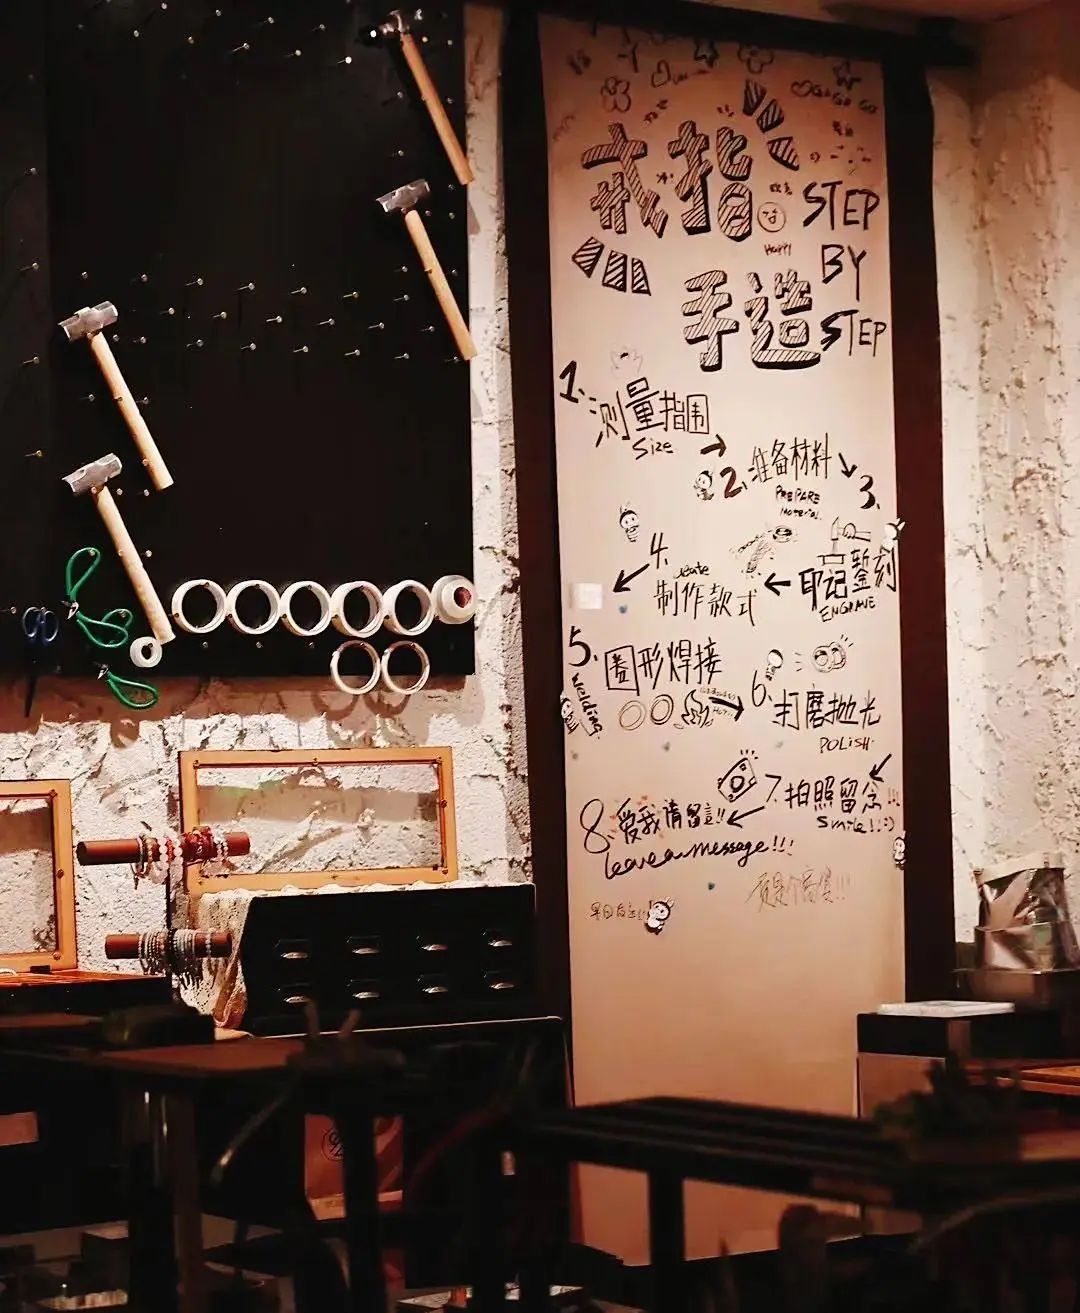 戒指
STEP
HAPPY
BY
手造
STEP
1.
测量指围
Size
2.
准备材料
PREPARE
Material
3.
印记錾刻
ENGRAVE
4.
制作款式
5.
圈形焊接
Welding
6.
打磨抛光
POLISH
7.
拍照留念!!
Smile!!:)
8.
爱我请留言!!
leave a message!!!